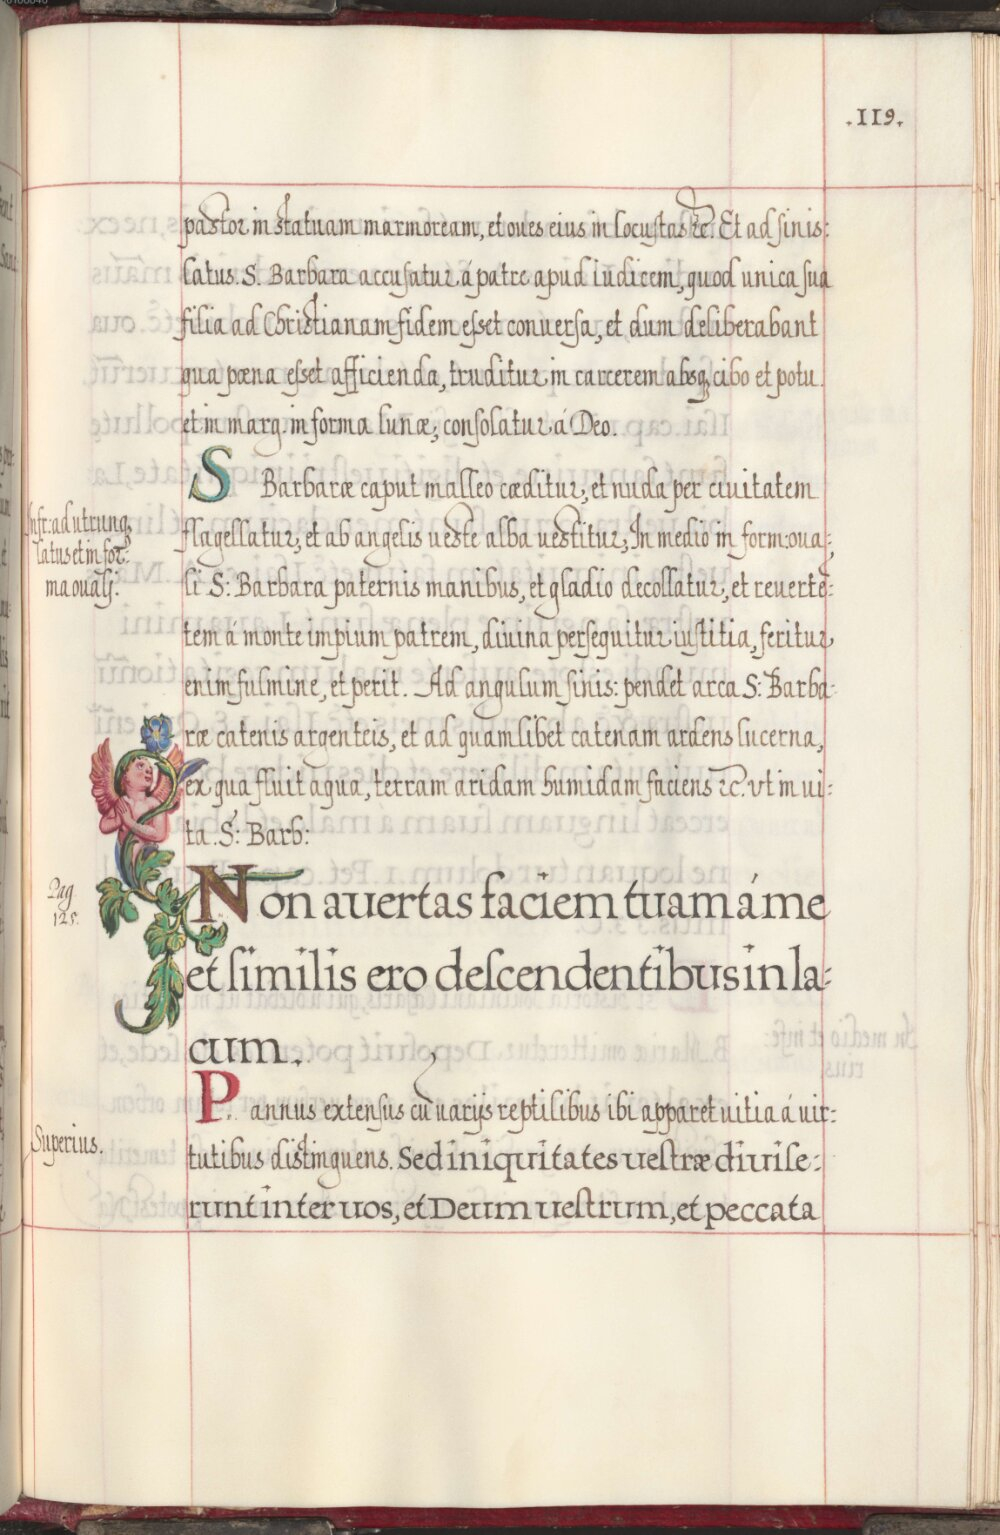 .119.
pastor in statuam marmoream, et oues eius in locustas &c. Et ad sinis:
latus. S. Barbara accusatur á patre apud iudicem, quod unica sua
filia ad Christianam fidem esset conuersa, et dum deliberabant
qua pœna esset afficienda, truditur in carcerem absq; cibo et potu.
et in marg. in forma lunæ; consolatur á Deo.
S Barbaræ caput malleo cæditur, et nuda per ciuitatem
Infr: ad utrunq;
latus et in for:
ma ouali:
flagellatur, et ab angelis ueste alba uestitur; In medio in form: oua:
li S: Barbara paternis manibus, et gladio decollatur, et reuertē:
tem á monte impium patrem, diuina persequitur iustitia, feritur
enim fulmine, et perit. Ad angulum sinis: pendet arca S: Barba:
ræ catenis argenteis, et ad quamlibet catenam ardens lucerna,
ex qua fluit aqua, terram aridam humidam faciens &c. vt in ui:
ta. S: Barb:
Pag
125.
Non auertas faciem tuam á me
et similis ero descendentibus in la:
cum.
P. annus extensus cū uarijs reptilibus ibi apparet uitia á uir:
Superius.
tutibus distinguens. Sed iniquitates uestræ diuise:
runt inter uos, et Deum uestrum, et peccata